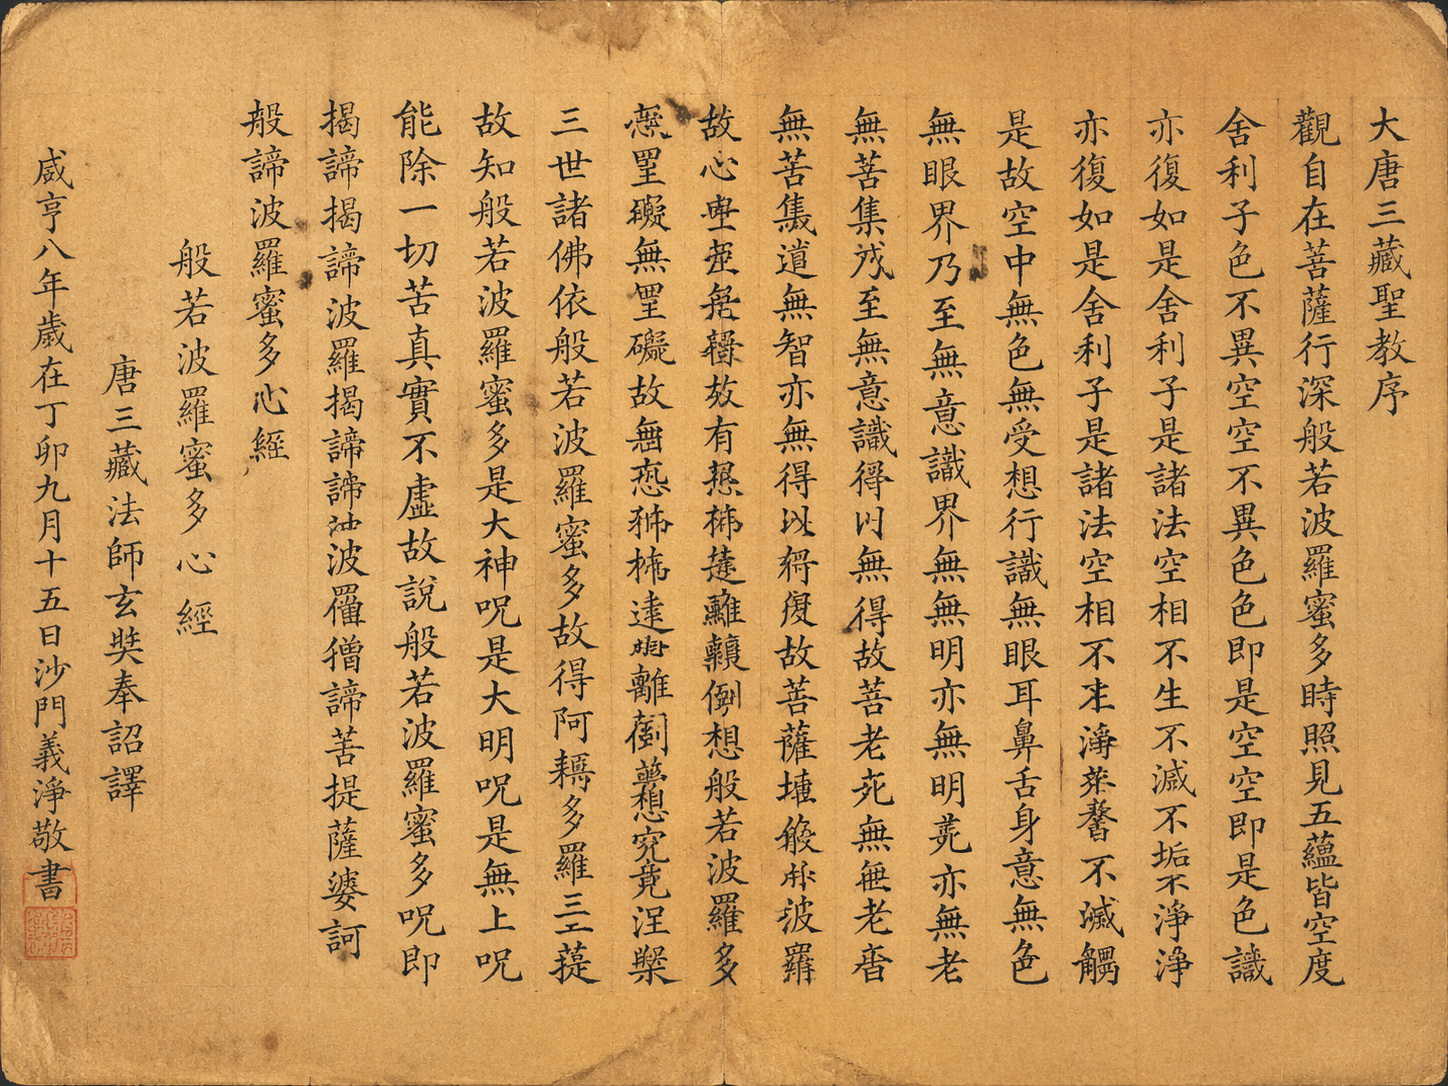 大唐三藏聖教序
觀自在菩薩行深般若波羅蜜多時照見五蘊皆空度
舍利子色不異空空不異色色即是空空即是色識
亦復如是舍利子是諸法空相不生不滅不垢不淨淨
亦復如是舍利子是諸法空相不淨不滅
是故空中無色無受想行識無眼耳鼻舌身意無色
無眼界乃至無意識界無無明亦無明亦無老
無菩集至無意識得無得故菩老死無老
無苦集道無智亦無得以故菩薩波羅
故心故有倒想般若波羅多
無礙故離想究竟涅槃
三世諸佛依般若波羅蜜多故得阿多羅三
故知般若波羅蜜多是大神呪是大明呪是無上呪
能除一切苦真實不虛故說般若波羅蜜多呪即
揭諦揭諦波羅揭諦諦波僧諦菩提薩婆訶
般諦波羅蜜多心經
般若波羅蜜多心經
唐三藏法師玄奘奉詔譯
咸亨八年歲在丁卯九月十五日沙門義淨敬書